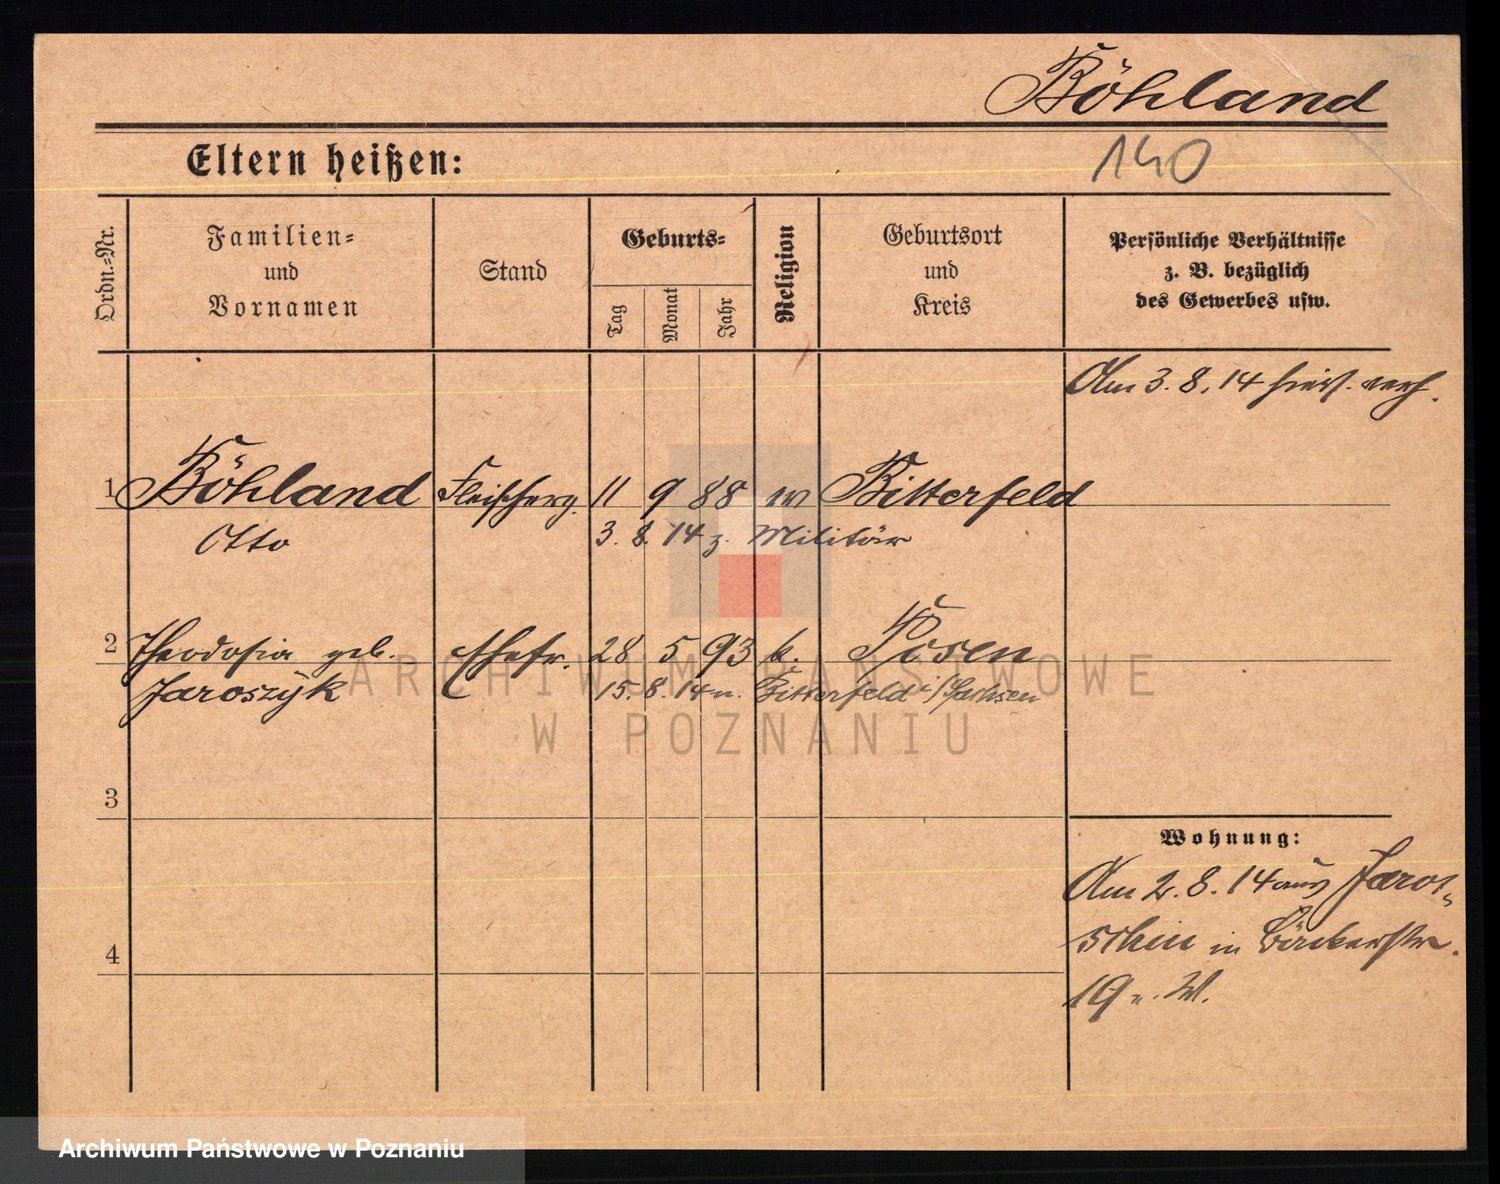 Böhland
140
Eltern heißen:
Ordn.-Nr.
Familien-
und
Vornamen
Stand
Geburts-
Tag
Monat
Jahr
Religion
Geburtsort
und
Kreis
Persönliche Verhältnisse
z. B. bezüglich
des Gewerbes usw.
Am 3. 8. 14 hies. verh.
1 Böhland Fleischerg. 11 9 88 ev Bitterfeld
Otto 3. 8. 14 z. Militär
2 Theodosia geb. Ehefr. 28 5 93 k. Posen
Jaroszyk 15. 8. 14 n. Bitterfeld i/Sachsen
3
Wohnung:
Am 2. 8. 14 aus Jarot-
schin in Bäckerstr.
19
4
ARCHIWUM PAŃSTWOWE
W POZNANIU
Archiwum Państwowe w Poznaniu